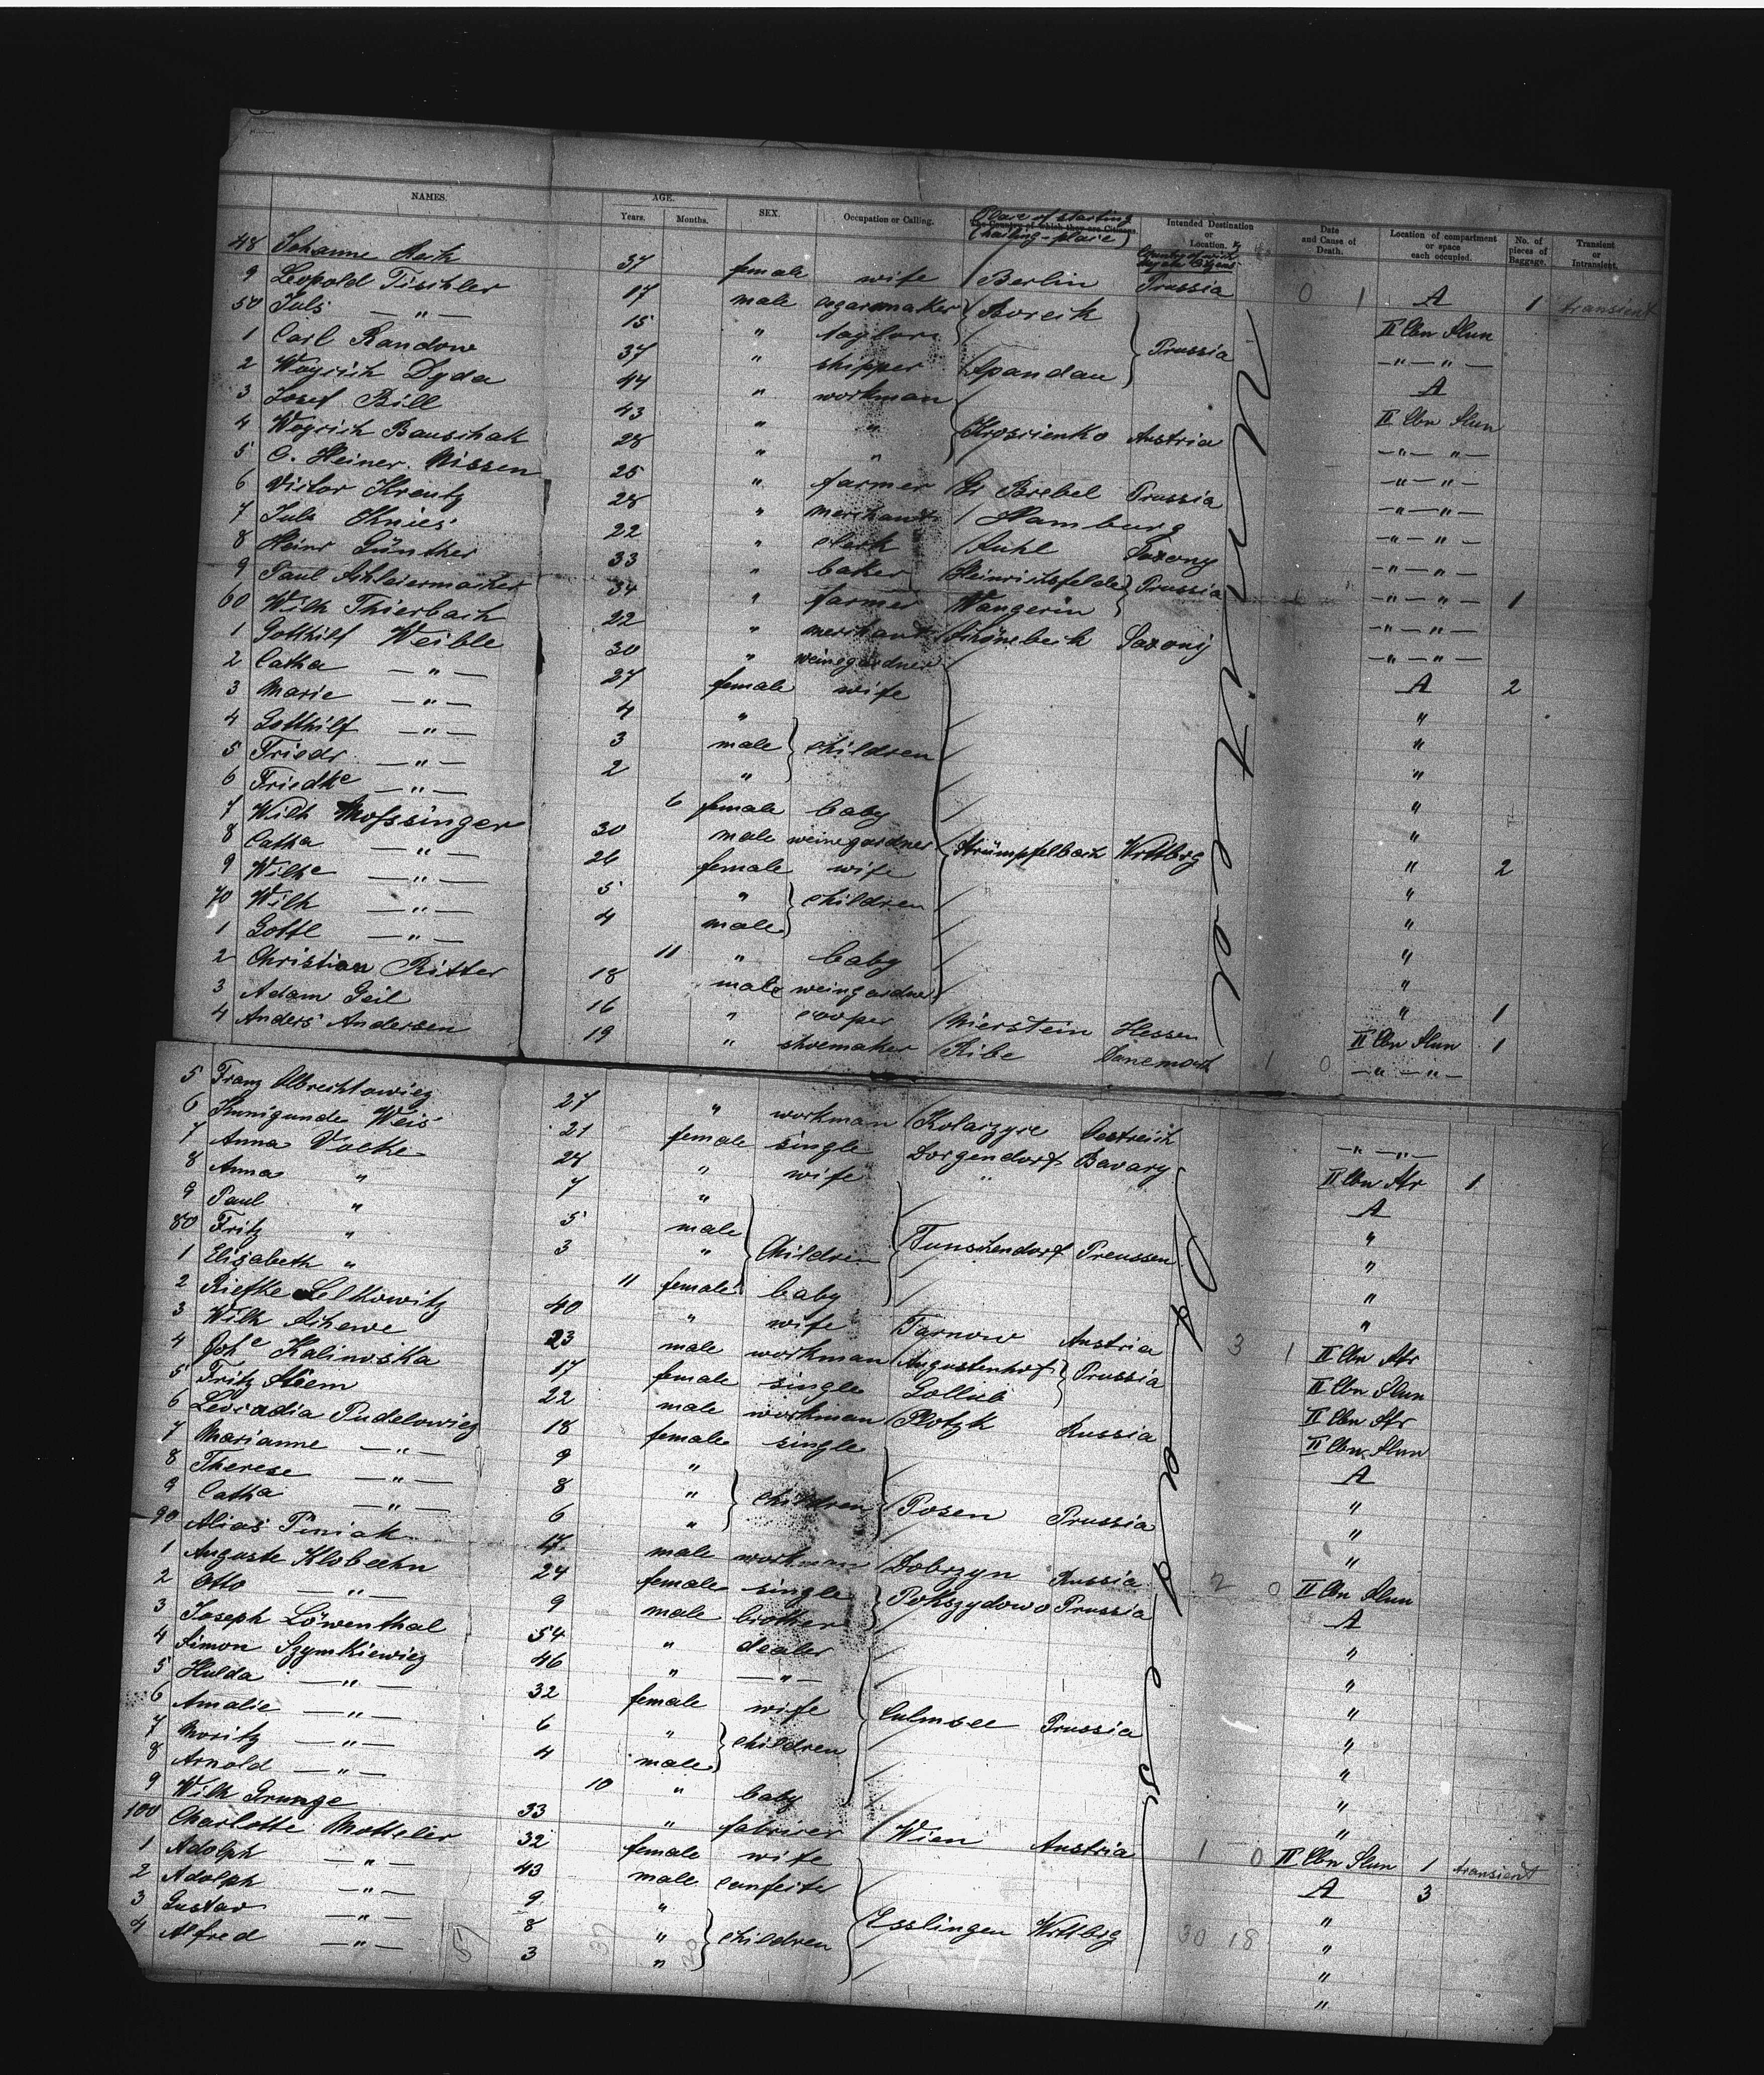 NAMES. AGE. Years. Months. SEX. Occupation or Calling. Place of starting (hailing-place) The Country of which they are Citizens. Intended Destination or Location. Country of which they are Citizens Date and Cause of Death. Location of compartment or space each occupied. No. of pieces of Baggage. Transient or Intransient.
48 Johanne 37 female wife Berlin Prussia 0 1 A 1 transient
9 Leopold Tischler 17 male cigarmaker II Cbn Stun
50 Juls —"— 15 " —"—"—
1 Carl Randow 37 " skipper Spandau Prussia A
2 Woyciech Dyda 44 " workman II Cbn Stun
3 Josef Bill 43 " " —"—"—
4 Woyciech Bauschak 28 " " Kroscienko Austria —"—"—
5 C. Heinr. Nissen 25 " farmer Gr Brebel Prussia —"—"—
6 Victor Kreutz 28 " merchant Hamburg —"—"—
7 Juls Knies 22 " clerk Suhl Saxony —"—"—
8 Heinr Günther 33 " baker Heinrichsfelde Prussia —"—"— 1
9 Paul Schleiermacher 34 " farmer Wangerin —"—"—
60 Wilh Thierbach 22 " merchant Schönebeck Saxony —"—"—
1 Gotthilf Weible 30 " weinegärdner A 2
2 Catha —"— 27 female wife "
3 Marie —"— 4 " "
4 Gotthilf —"— 3 male children "
5 Friedr —"— 2 " "
6 Friedke —"— 6 female baby "
7 Wilh Mossinger 30 male weinegärdner Strümpfelbach Wrttbrg " 2
8 Catha —"— 26 female wife "
9 Wilhe —"— 5 " children "
70 Wilh —"— 4 male "
1 Gottl —"— 11 " baby "
2 Christian Ritter 18 male weingärdner " 1
3 Adam Geil 16 " cooper Nierstein Hessen II Cbn Stun 1
4 Anders Andersen 19 " shoemaker Ribe Danemark 1 0 —"—"—
5 Franz Olbrechtowicz 27 " workman Kolaczyce Oestreich —"—"—
6 Kunigunde Weis 21 female single Dorgendorf Bavary II Cbn Str 1
7 Anna Voelke 28 " wife " A
8 Anna " 7 " "
9 Paul " 5 male Children Tunschendorf Preussen "
80 Fritz " 3 " "
1 Elisabeth " 11 female baby "
2 Riefke Selkowitz 40 " wife Tarnow Austria 3 1 II Cbn Str
3 Wilh 23 male workman Augustenhof Prussia II Cbn Stun
4 Johe Kalinoska 17 female single Gollub II Cbn Str
5 Fritz 22 male workman Plotzk Russia II Cbn Stun
6 Leocadia Pudelowicz 18 female single A
7 Marianne —"— 9 " "
8 Therese —"— 8 " children Posen Prussia "
9 Catha —"— 6 " "
90 Alias Piniak 17 male workman Dobrzyn Russia 2 0 II Cbn Stun
1 Auguste Klobeehn 24 female single Pokszydowo Prussia A
2 Otto —"— 9 male brother "
3 Joseph Löwenthal 54 " dealer "
4 Simon Szymkiewicz 46 " —"— "
5 Hulda —"— 32 female wife Culmsee Prussia "
6 Amalie —"— 6 " children "
7 Moritz —"— 4 male "
8 Arnold —"— 10 " baby "
9 Wilh Grunge 33 " fabricer Wien Austria 1 0 II Cbn Stun 1 transient
100 Charlotte Motteler 32 female wife A 3
1 Adolph —"— 43 male confeiter "
2 Adolph —"— 9 " Esslingen Wrttbg 30 18 "
3 Gustav —"— 8 " children "
4 Alfred —"— 3 " "